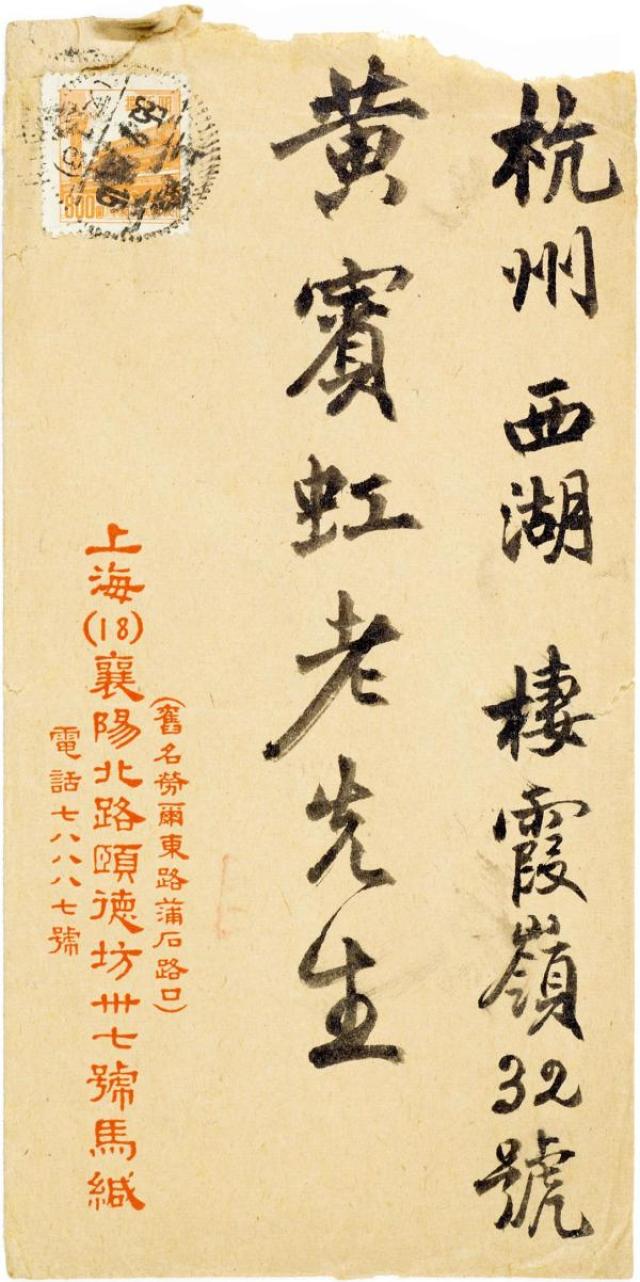 杭州 西湖 棲霞嶺32號
黃賓虹老先生
(舊名勞爾東路蒲石路口)
上海(18)襄陽北路頤德坊卌七號馬緘
電話七八八八七號
800